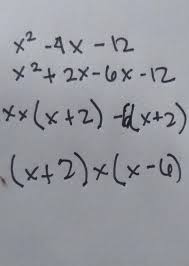 x² - 4x - 12
x² + 2x - 6x - 12
x × (x + 2) - 6(x + 2)
(x + 2) × (x - 6)